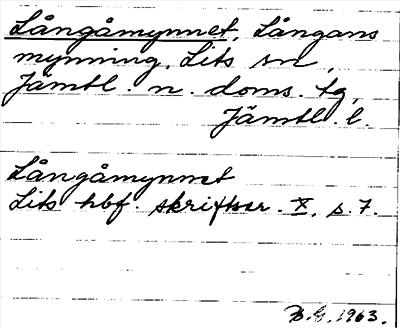 Långåmynnet, Långans
mynning, Lits sn,
Jämtl. n. doms. tg,
Jämtl. l.
Långåmynnet
Lits hbf. skriftser. X, s. 7.
B.G. 1963.